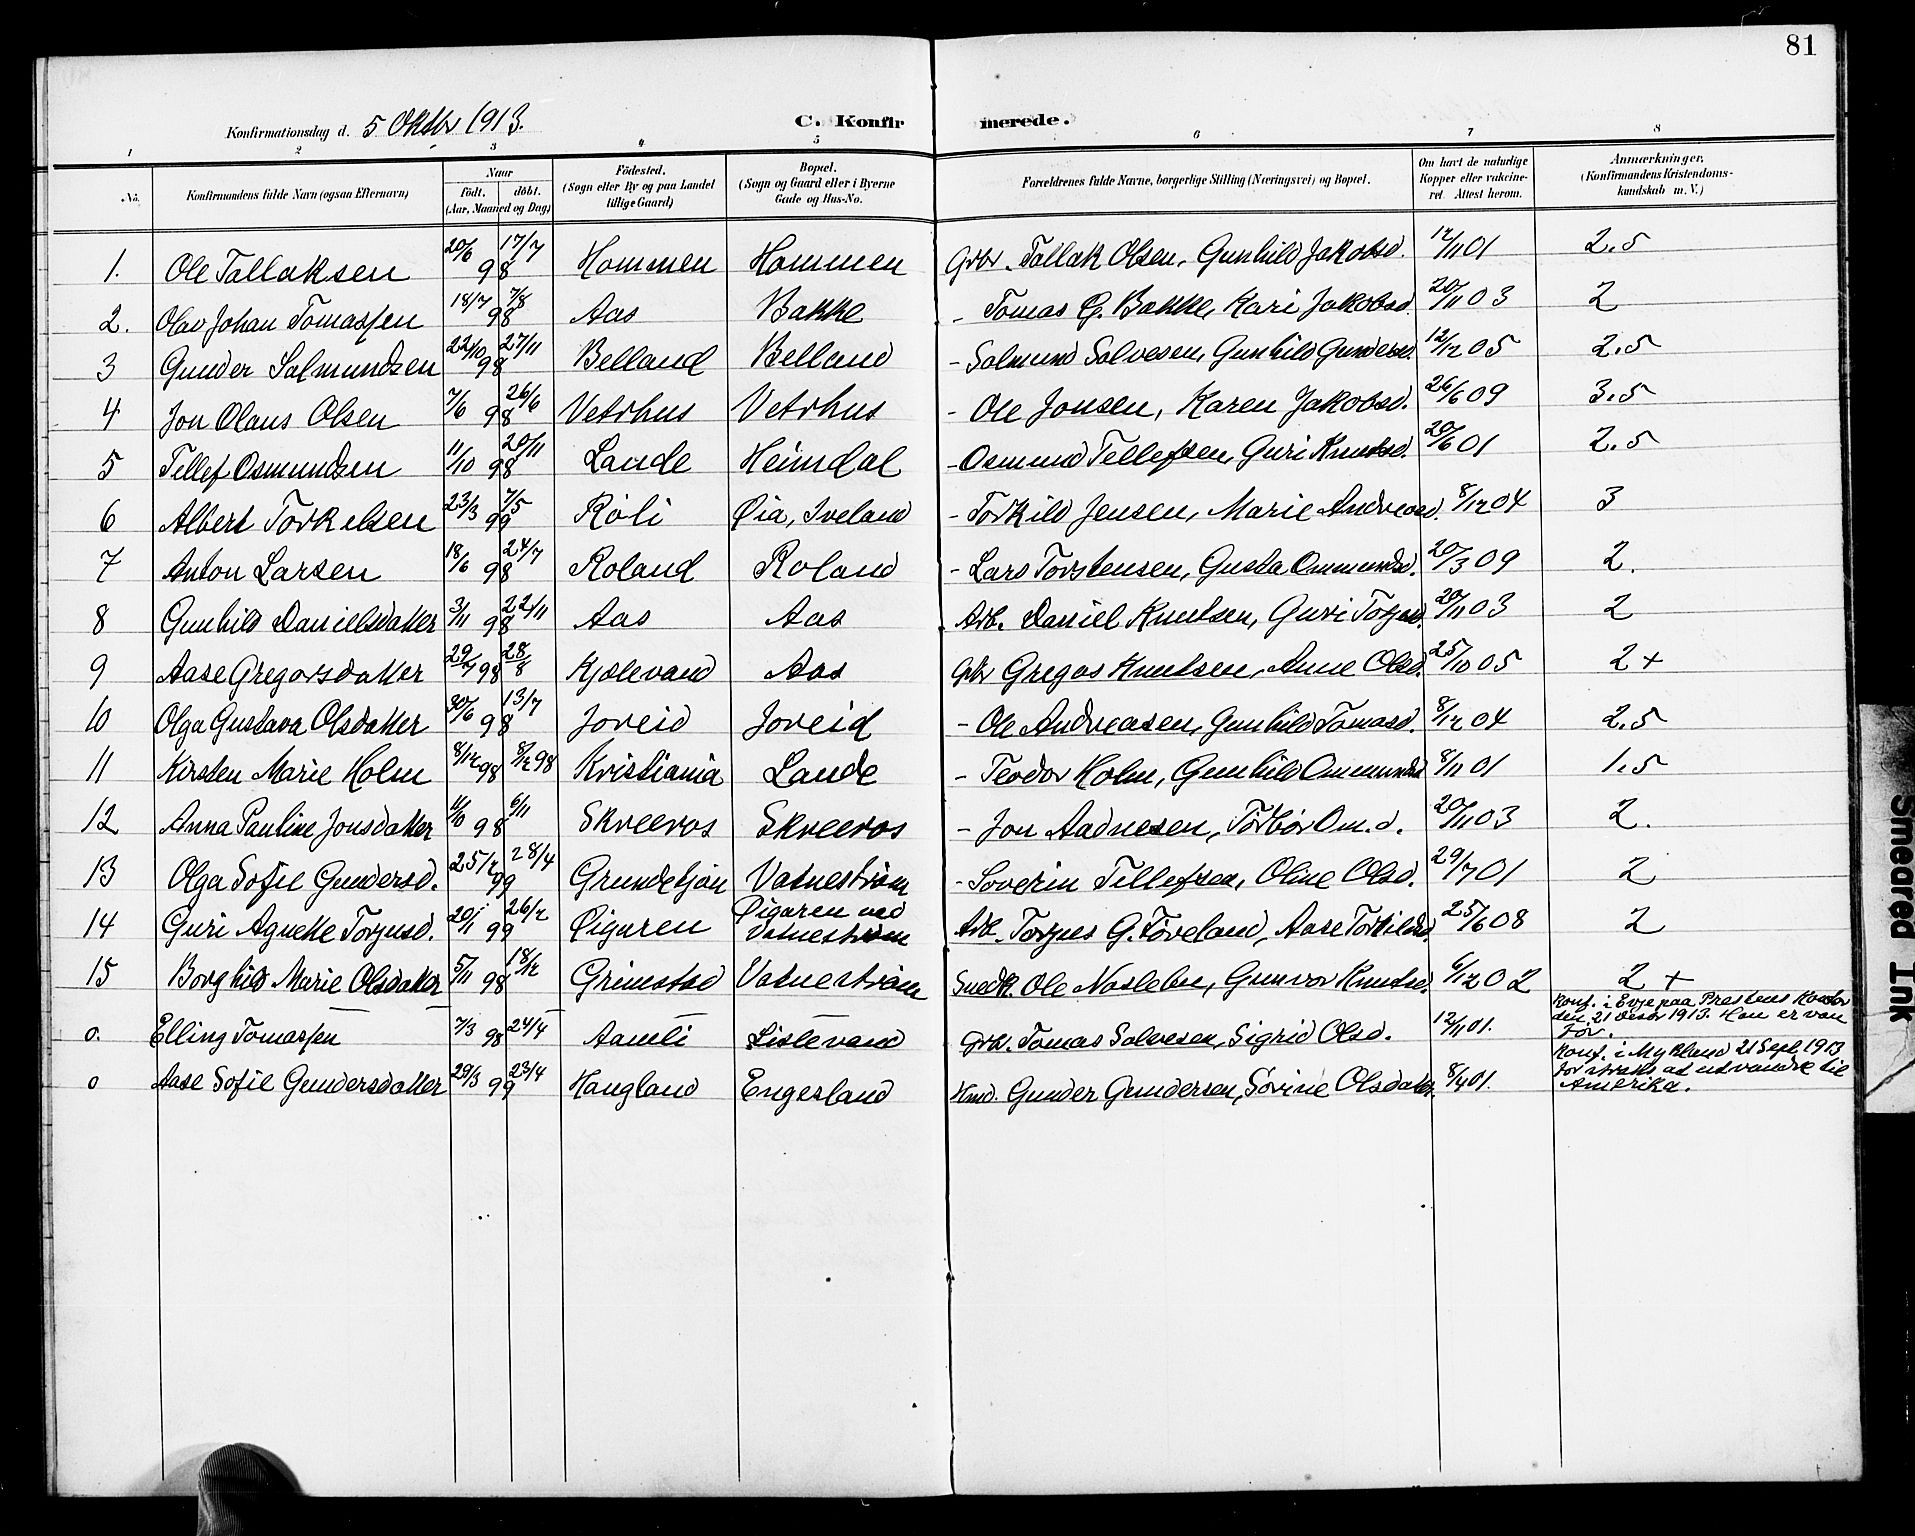 81
Konfirmationsdag d. 5 Oktbr 1913.
C. Konfirmerede.
1 2 3 4 5 6 7 8
No. Konfirmandens fulde Navn (ogsaa Efternavn) Naar født, døbt. (Aar, Maaned og Dag) Fødested. (Sogn eller By og paa Landet tillige Gaard) Bopæl. (Sogn og Gaard eller i Byerne Gade og Hus-No. Forældrenes fulde Navne, borgerlige Stilling (Næringsvei) og Bopæl. Om havt de naturlige Kopper eller vaccineret. Attest herom. Anmærkninger, (Konfirmandens Kristendomskundskab m. V.)
1. Ole Tallaksen 20/6 17/7 98 Hommen Hommen Grbr. Tallak Olsen, Gunhild Jakobsd. 12/11 01 2.5
2. Olav Johan Tomassen 18/7 7/8 98 Aas Bakke - Tomas G. Bakke, Kari Jakobsd 20/11 03 2
3 Gunder Salmundsen 22/10 27/11 98 Belland Belland - Salmund Salvesen, Gunhild Gundersd. 12/12 05 2.5
4 Jon Olaus Olsen 7/6 26/6 98 Vetrhus Vetrhus - Ole Jonsen, Karen Jakobsd. 26/6 09 3.5
5 Tellef Osmundsen 11/10 20/11 98 Lande Heimdal - Osmund Tellefsen, Guri Knutsd. 20/6 01 2.5
6 Albert Torkelsen 23/3 7/5 99 Røli Øia, Iveland - Torkild Jensen, Marie Andreasd. 8/12 04 3
7 Anton Larsen 18/6 24/7 98 Roland Roland - Lars Torstensen, Gusta Ommundsd. 20/3 09 2.
8 Gunhild Danielsdatter 3/11 22/11 98 Aas Aas Arb. Daniel Knutsen, Guri Torjusd. 20/11 03 2
9 Aase Gregarsdatter 29/7 98 28/8 Kjølevand Aas Gbr Gregas Knutsen, Anne Olsd. 25/10 05 2+
10 Olga Gustava Olsdatter 30/6 13/7 98 Joveid Joveid - Ole Andreasen, Gunhild Tomasd. 8/12 04 2.5
11 Kirsten Marie Holm 8/12 98 8/12 98 Kristiania Lande - Teodor Holm, Gunhild Ommundsd 8/11 01 1.5
12 Anna Pauline Jonsdatter 11/10 98 6/11 Skreeros Skreeros - Jon Aadnesen, Torbor Om.d. 20/11 03 2.
13 Olga Sofie Gundersd. 25/2 28/4 99 Grundetjøn Vatnestrøm - Soverin Tellefsen, Oline Olsd. 29/7 01 2
14 Guri Agnette Torjusd. 20/1 26/2 99 Øigaren Øigaren ved Vatnestrøm Arb. Torjus G. Töveland, Aase Torkildsd. 25/6 08 2
15 Borghild Marie Olsdatter 5/11 98 18/12 Grimstad Vatnestrøm Snedk. Ole Nesleber, Gunvor Knutsd. 6/12 02 2 +
o. Elling Tomassen 7/3 98 24/4 Aamli Lislevand Grbr. Tomas Salvesen, Sigrid Olsd. 12/11 01. Konf. i Evje paa Prestens Kontor den 21 Decbr 1913. Han er van før.
o Aase Sofie Gundersdatter 29/3 23/4 99 Haugland Engesland Hmd. Gunder Gundersen, Sørine Olsdatter. 8/4 01. Konf. i Mykland 21 Sept. 1913 for straks at udvandre til Amerika.
Smeared Ink